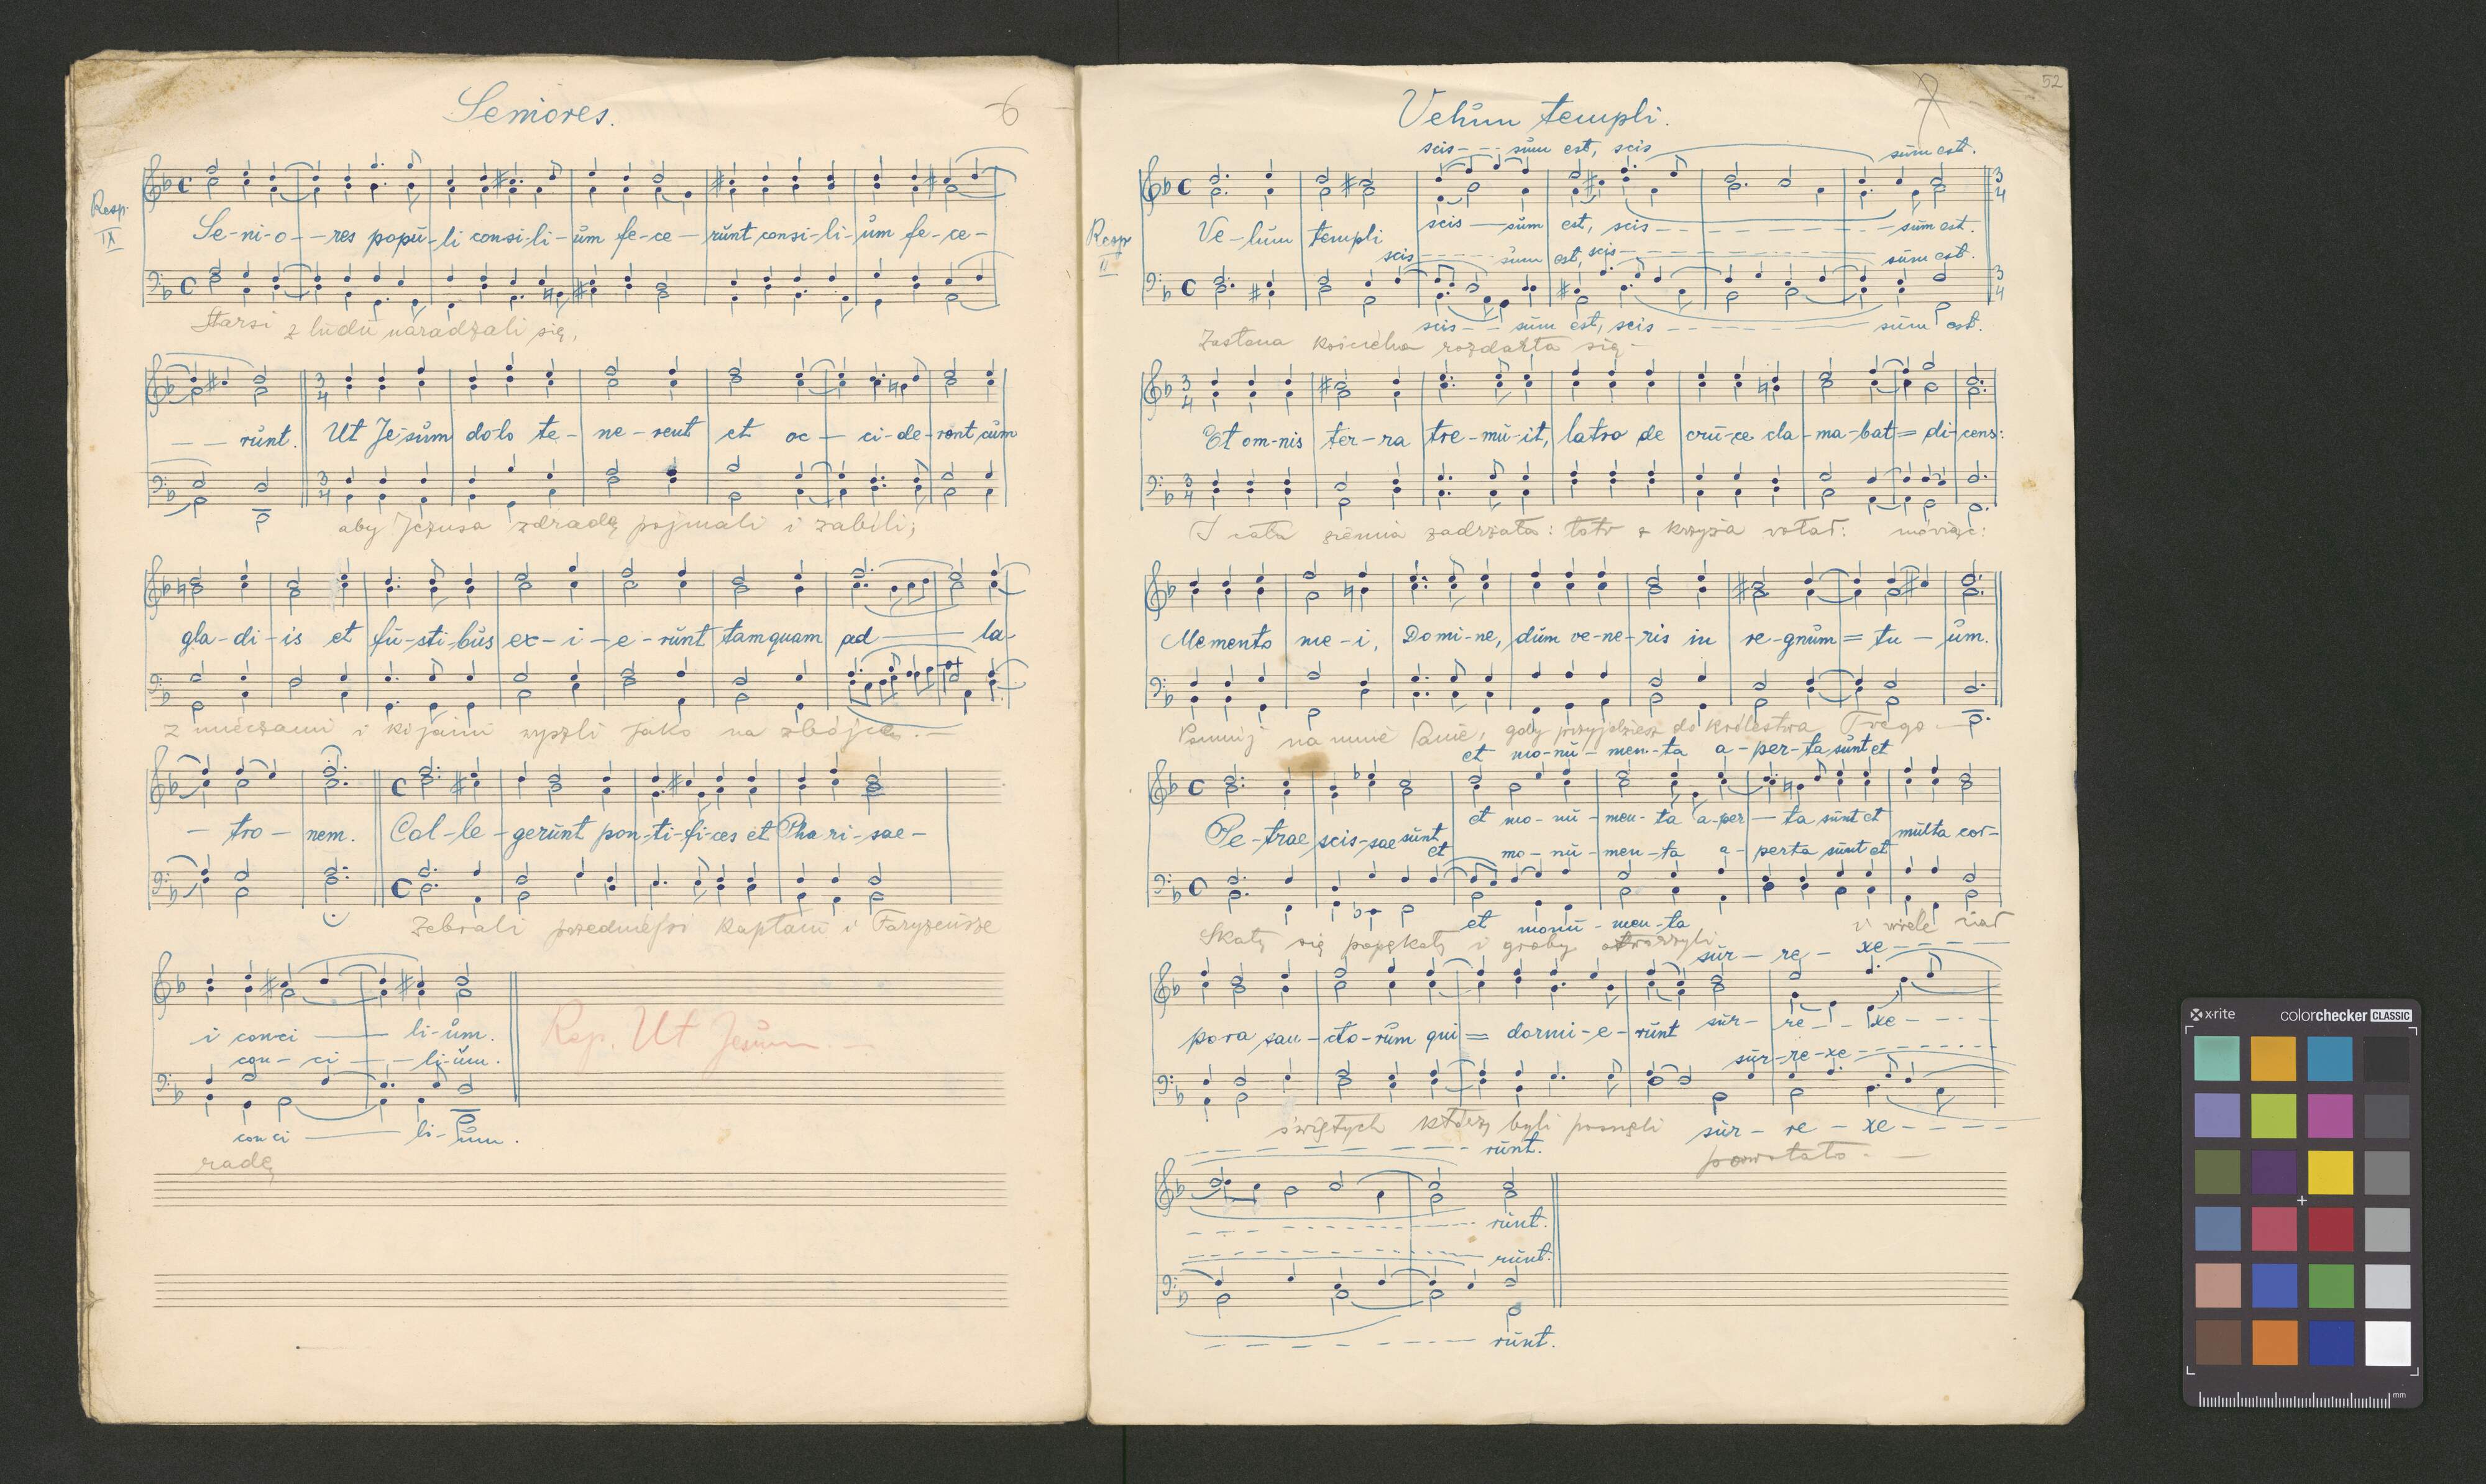 Seniores.
6
Resp. IX
Se-ni-o--res popū-li consi-li-ūm fe-ce-rūnt consi-li-ūm fe-ce-
Starsi z ludu naradzali się,
-- rūnt. Ut Je-sūm dolo te-ne-rent et oc-ci-de-rent cūm
aby Jezusa zdradą pojmali i zabili;
gla-di-is et fū-sti-būs ex-i-e-rūnt tamquam ad — la-
z mieczami i kijami wyszli jako na zbójcę. —
- tro - nem. Col-le-gerūnt pon-ti-fi-ces et Pha-ri-sae-
Zebrali przedniejsi kapłani i Faryzeusze
i conci —— li-ūm.
con-ci —- li-ūm.
Rep. Ut Jesūm. —
conci —— li-ūm.
radę
Velūm templi.
7
52
scis--- sūm est, scis sūm est.
Resp II
Ve-lūm templi scis — sūm est, scis------- sūm est.
scis----- sūm est, scis------- sūm est.
scis--- sūm est, scis ------ sūm est.
Zasłona kościelna rozdarła się -
Et om-nis ter-ra tre-mū-it, latro de crū-ce cla-ma-bat = di-cens:
I cała ziemia zadrżała: łotr z krzyża wołał: mówiąc:
Memento me-i, Do-mi-ne, dūm ve-ne-ris in re-gnūm = tu - ūm.
Pomnij na mnie Panie, gdy przyjdziesz do królestwa Twego -
et mo-nū-men-ta a-per-ta sūnt et
et mo-nū-men-ta a-per - ta sūnt et
Pe-trae scis-sae sūnt mūlta cor-
et mo-nū-men-ta a-perta sūnt et
et monū-men-ta
Skały się popękały i groby otworzyli i wiele ciał
sūr - re - xe ----
pora san-cto-rūm qui = dormi-e-rūnt sūr- re -- xe ----
sūr-re-xe------
świętych którzy byli posnęli sūr - re - xe ----
powstało. —
------ rūnt.
------ rūnt.
------ rūnt.
------ rūnt.
x-rite colorchecker CLASSIC
mm